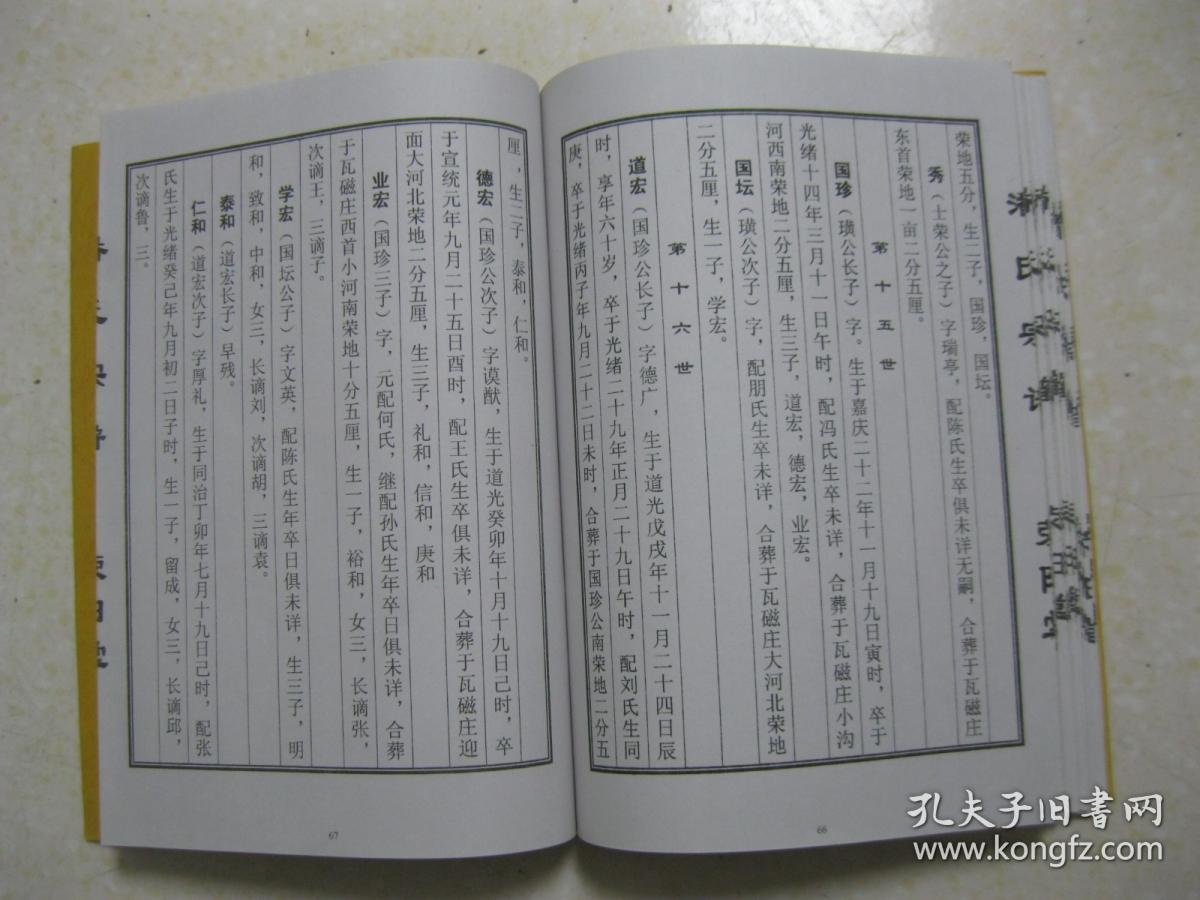 荣地五分，生二子，国珍，国坛。
秀（士荣公之子）字瑞亭，配陈氏生卒俱未详无嗣，合葬于瓦磁庄
东首荣地一亩二分五厘。
第十五世
国珍（璜公长子）字。生于嘉庆二十二年十一月十九日寅时，卒于
光绪十四年三月十一日午时，配冯氏生卒未详，合葬于瓦磁庄小沟
河西南荣地二分五厘，生三子，道宏，德宏，业宏。
国坛（璜公次子）字，配朋氏生卒未详，合葬于瓦磁庄大河北荣地
二分五厘，生一子，学宏。
第十六世
道宏（国珍公长子）字德广，生于道光戊戌年十一月二十四日辰
时，享年六十岁，卒于光绪二十九年正月二十九日午时，配刘氏生同
庚，卒于光绪丙子年九月二十二日未时，合葬于国珍公南荣地二分五
66
厘，生二子，泰和，仁和。
德宏（国珍公次子）字谟猷，生于道光癸卯年十月十九日己时，卒
于宣统元年九月二十五日酉时，配王氏生卒俱未详，合葬于瓦磁庄迎
面大河北荣地二分五厘，生三子，礼和，信和，庚和
业宏（国珍三子）字，元配何氏，继配孙氏生年卒日俱未详，合葬
于瓦磁庄西首小河南荣地十分五厘，生一子，裕和，女三，长谪张，
次谪王，三谪子。
学宏（国坛公子）字文英，配陈氏生年卒日俱未详，生三子，明
和，致和，中和，女三，长谪刘，次谪胡，三谪袁。
泰和（道宏长子）早残。
仁和（道宏次子）字厚礼，生于同治丁卯年七月十九日己时，配张
氏生于光绪癸己年九月初二日子时，生一子，留成，女三，长谪邱，
次谪鲁，三。
67
孔夫子旧书网
www.kongfz.com